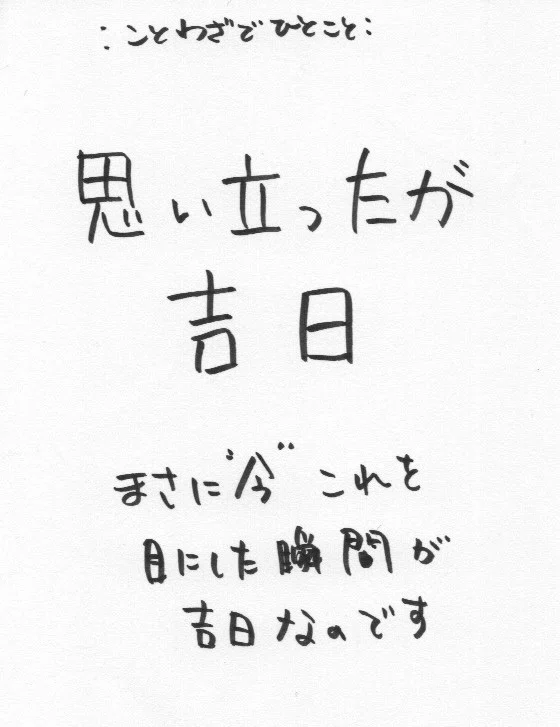 ：ことわざでひとこと：
思い立ったが
吉日
まさに“今”これを
目にした瞬間が
吉日なのです